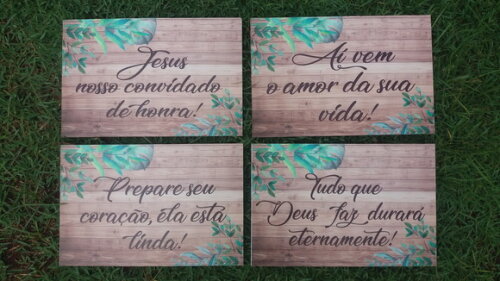 Jesus
nosso convidado
de honra!
Aí vem
o amor da sua
vida!
Prepare seu
coração, ela está
linda!
Tudo que
Deus faz durará
eternamente!